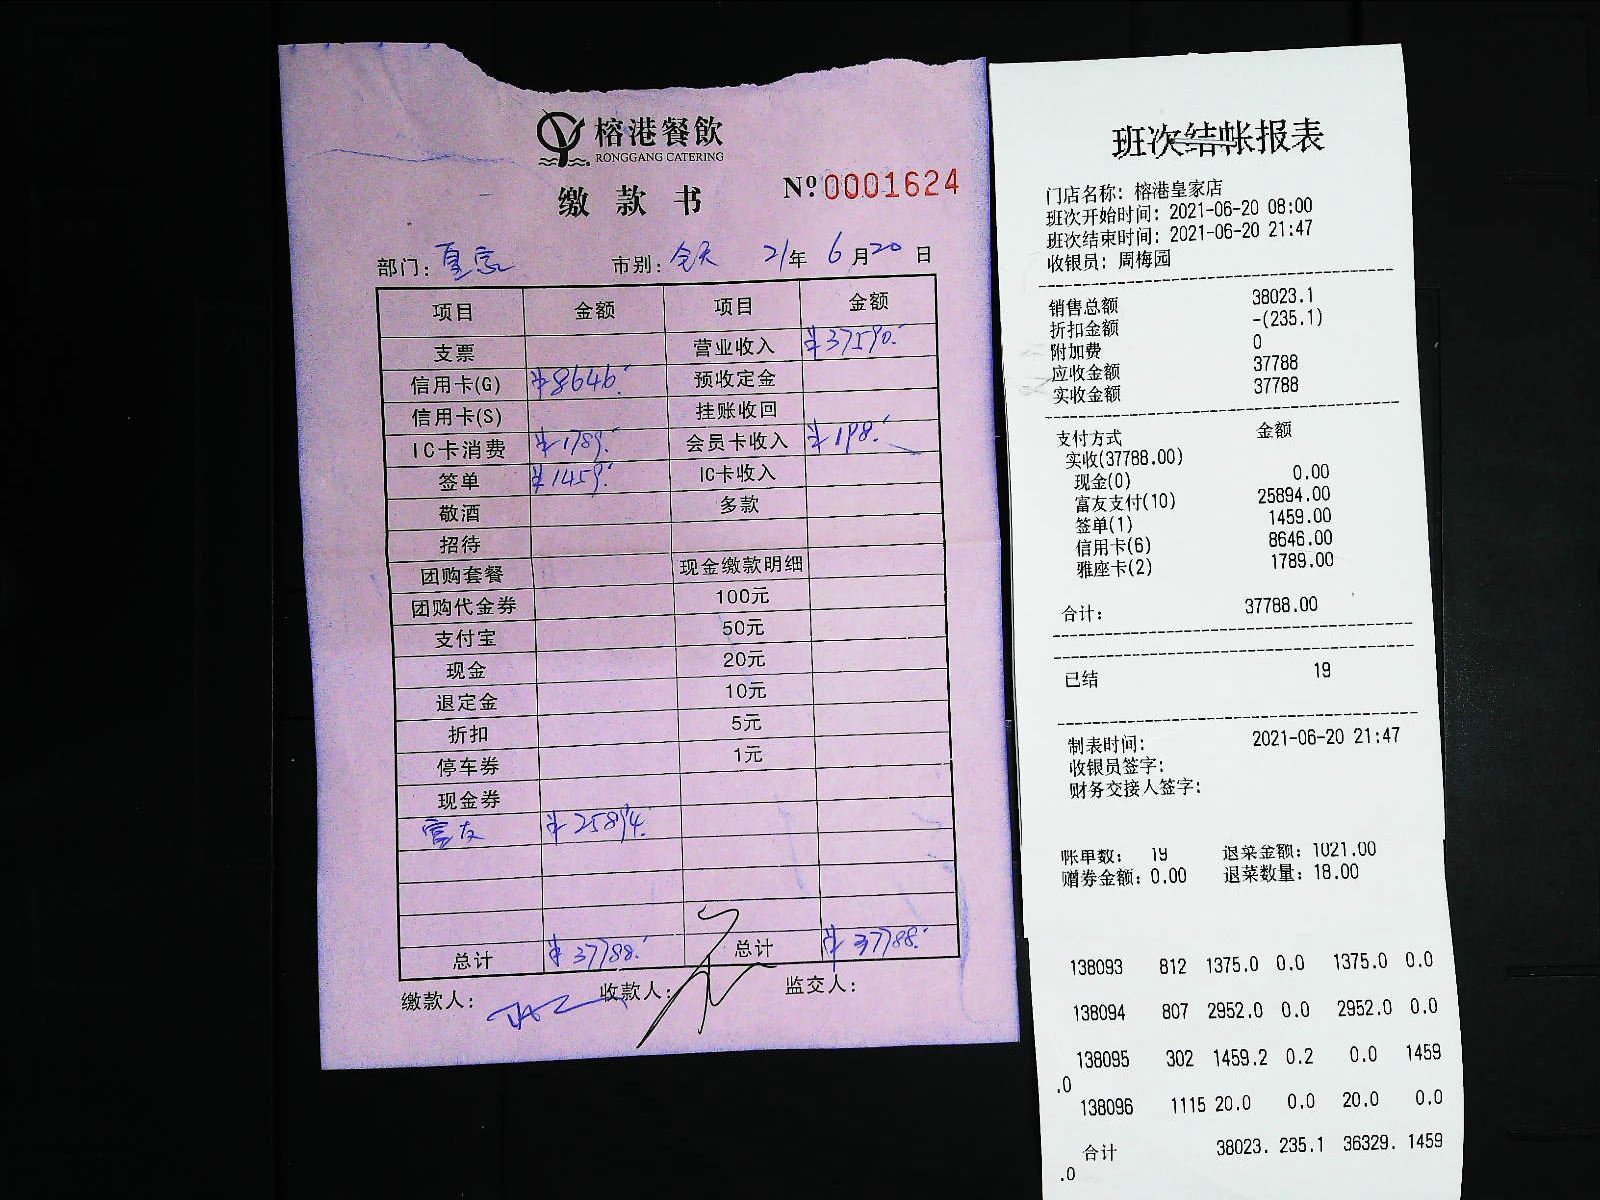 榕港餐飲
RONGGANG CATERING
缴款书
Nº 0001624
部门: 皇家 市别: 全天 21年 6月20日
项目 金额 项目 金额
支票 营业收入 ¥37590.
信用卡(G) ¥8646. 预收定金
信用卡(S) 挂账收回
IC卡消费 ¥1789. 会员卡收入 ¥198.
签单 ¥1459. IC卡收入
敬酒 多款
招待
团购套餐 现金缴款明细
团购代金券 100元
支付宝 50元
现金 20元
退定金 10元
折扣 5元
停车券 1元
现金券
富友 ¥25894.
总计 ¥37788. 总计 ¥37788.
缴款人: 收款人: 监交人:
班次结帐报表
门店名称: 榕港皇家店
班次开始时间: 2021-06-20 08:00
班次结束时间: 2021-06-20 21:47
收银员: 周梅园
销售总额 38023.1
折扣金额 -(235.1)
附加费 0
应收金额 37788
实收金额 37788
支付方式 金额
实收(37788.00)
现金(0) 0.00
富友支付(10) 25894.00
签单(1) 1459.00
信用卡(6) 8646.00
雅座卡(2) 1789.00
合计: 37788.00
已结 19
制表时间: 2021-06-20 21:47
收银员签字:
财务交接人签字:
账单数: 19 退菜金额: 1021.00
赠券金额: 0.00 退菜数量: 18.00
138093 812 1375.0 0.0 1375.0 0.0
138094 807 2952.0 0.0 2952.0 0.0
138095 302 1459.2 0.2 0.0 1459
.0
138096 1115 20.0 0.0 20.0 0.0
合计 38023. 235.1 36329. 1459
.0